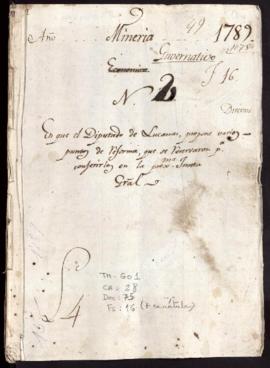 49
Año Mineria 1789
Guvernativo
Economico
f 16
N. 2
En que el Diputado de Lucanas, propone varios
puntos de Reforma, que se reservaron pª.
conferirlos en la prox.ma Junta
Gràl.
4
TM-GO1
CA: 28
Doc: 75
Fs: 16 (+ carátula)